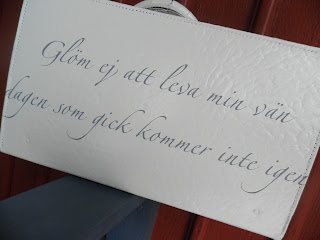 Glöm ej att leva min vän
dagen som gick kommer inte igen